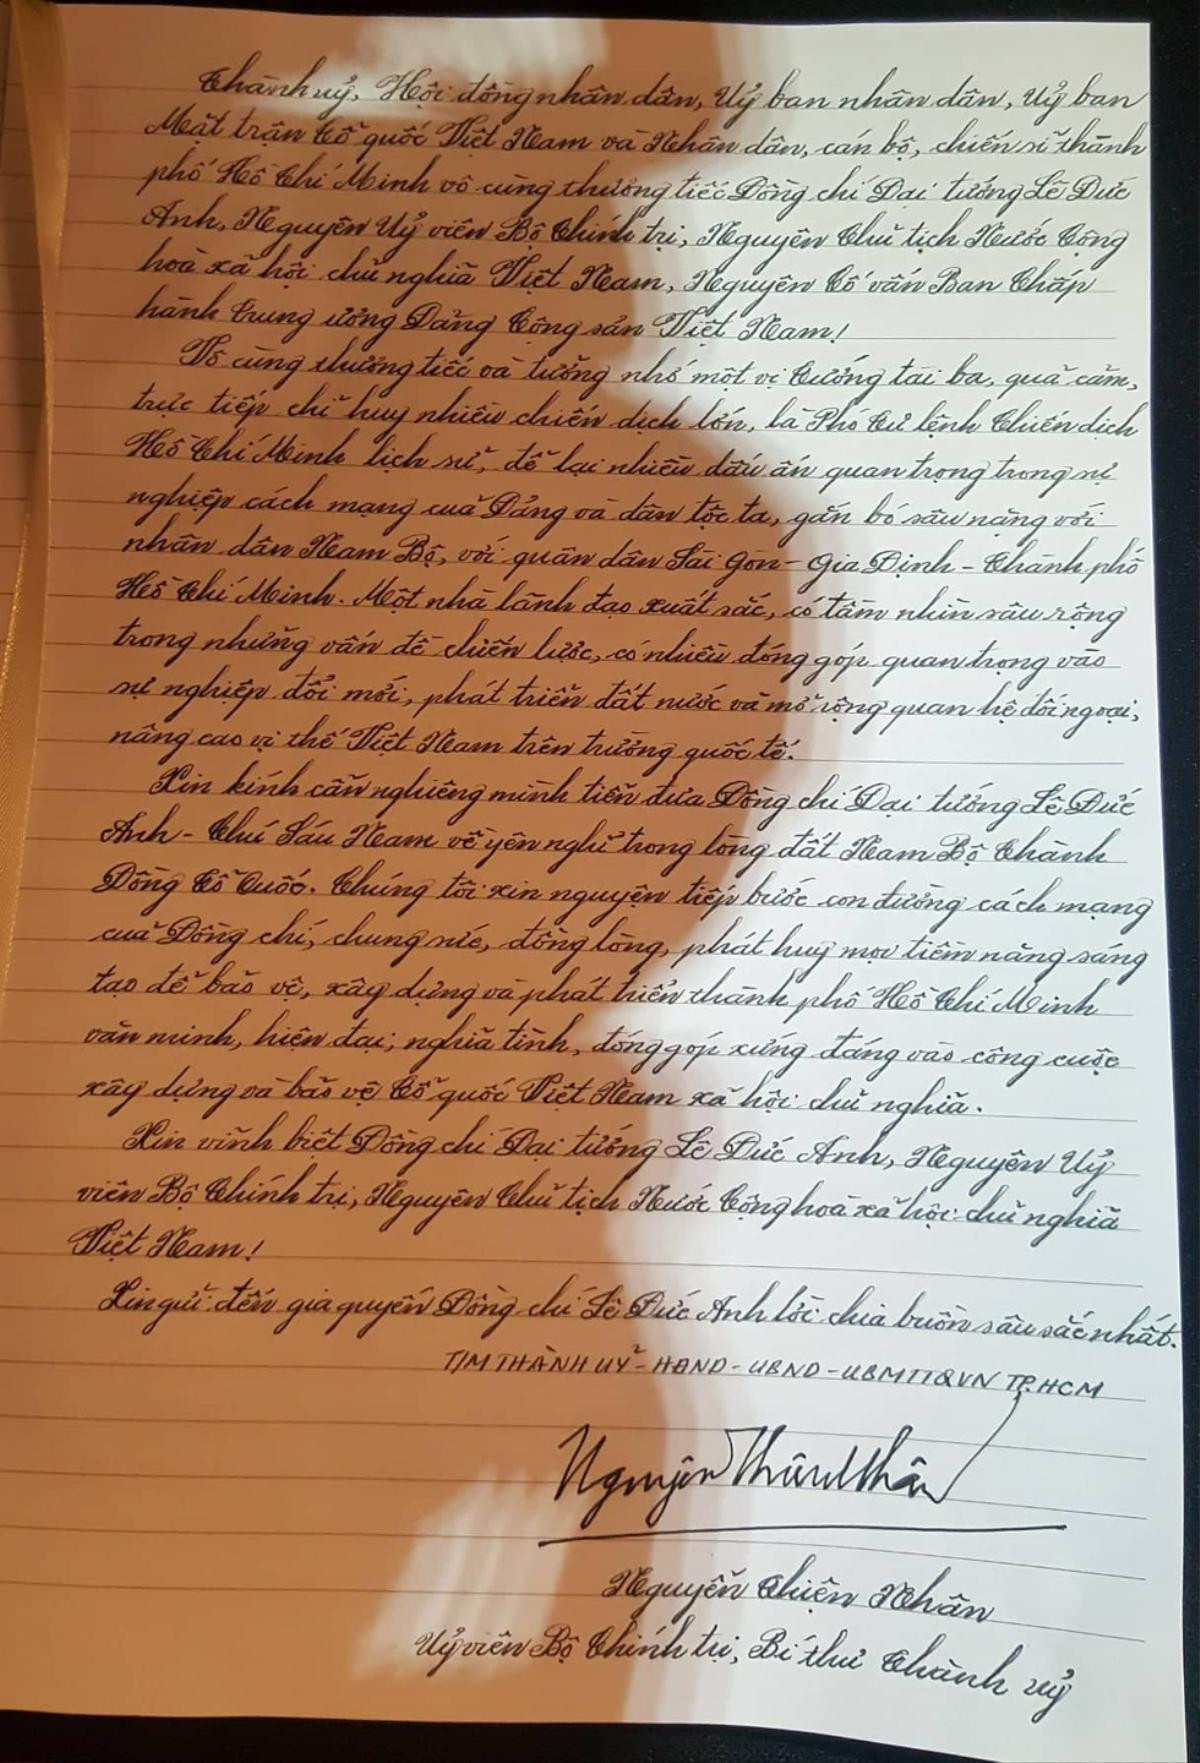 Thành uỷ, Hội đồng nhân dân, Uỷ ban nhân dân, Uỷ ban
Mặt trận Tổ quốc Việt Nam và Nhân dân, cán bộ, chiến sĩ thành
phố Hồ Chí Minh vô cùng thương tiếc Đồng chí Đại tướng Lê Đức
Anh, Nguyên Uỷ viên Bộ Chính trị, Nguyên Chủ tịch Nước Cộng
hoà xã hội chủ nghĩa Việt Nam, Nguyên Cố vấn Ban Chấp
hành Trung ương Đảng Cộng sản Việt Nam!
Vô cùng thương tiếc và tưởng nhớ một vị Tướng tài ba, quả cảm,
trực tiếp chỉ huy nhiều chiến dịch lớn, là Phó Tư lệnh Chiến dịch
Hồ Chí Minh lịch sử, để lại nhiều dấu ấn quan trọng trong sự
nghiệp cách mạng của Đảng và dân tộc ta, gắn bó sâu nặng với
nhân dân Nam Bộ, với quân dân Sài Gòn - Gia Định - Thành phố
Hồ Chí Minh. Một nhà lãnh đạo xuất sắc, có tầm nhìn sâu rộng
trong những vấn đề chiến lược, có nhiều đóng góp quan trọng vào
sự nghiệp đổi mới, phát triển đất nước và mở rộng quan hệ đối ngoại,
nâng cao vị thế Việt Nam trên trường quốc tế.
Xin kính cẩn nghiêng mình tiễn đưa Đồng chí Đại tướng Lê Đức
Anh - Chú Sáu Nam về yên nghỉ trong lòng đất Nam Bộ Thành
Đồng Tổ Quốc. Chúng tôi xin nguyện tiếp bước con đường cách mạng
của Đồng chí, chung sức, đồng lòng, phát huy mọi tiềm năng sáng
tạo để bảo vệ, xây dựng và phát triển thành phố Hồ Chí Minh
văn minh, hiện đại, nghĩa tình, đóng góp xứng đáng vào công cuộc
xây dựng và bảo vệ Tổ quốc Việt Nam xã hội chủ nghĩa.
Xin vĩnh biệt Đồng chí Đại tướng Lê Đức Anh, Nguyên Uỷ
viên Bộ Chính trị, Nguyên Chủ tịch Nước Cộng hoà xã hội chủ nghĩa
Việt Nam!
Xin gửi đến gia quyến Đồng chí Lê Đức Anh lời chia buồn sâu sắc nhất.
T/M THÀNH UỶ - HĐND - UBND - UBMTTQVN TP. HCM
Nguyễn Thiện Nhân
Nguyễn Thiện Nhân
Uỷ viên Bộ Chính trị, Bí thư Thành uỷ